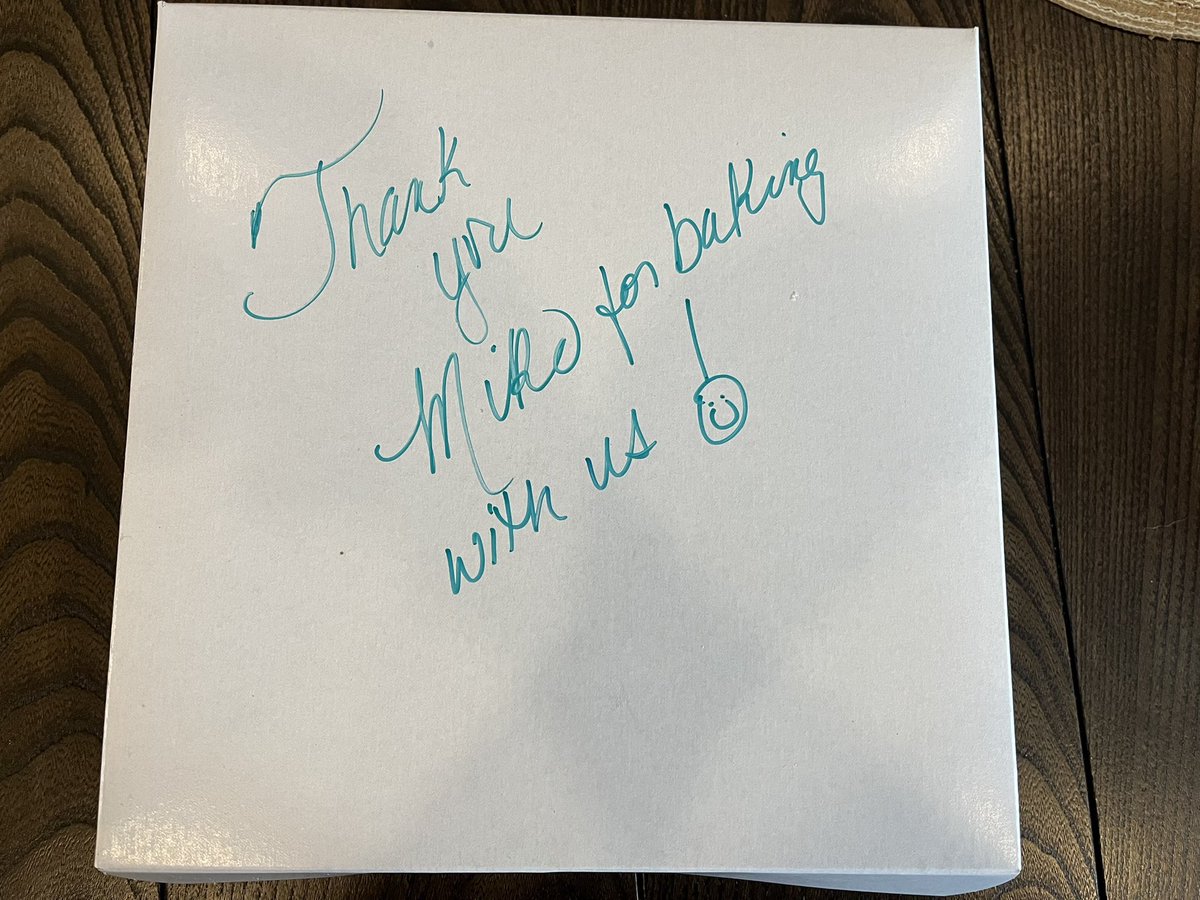 Thank
you
Miko for baking
with us!